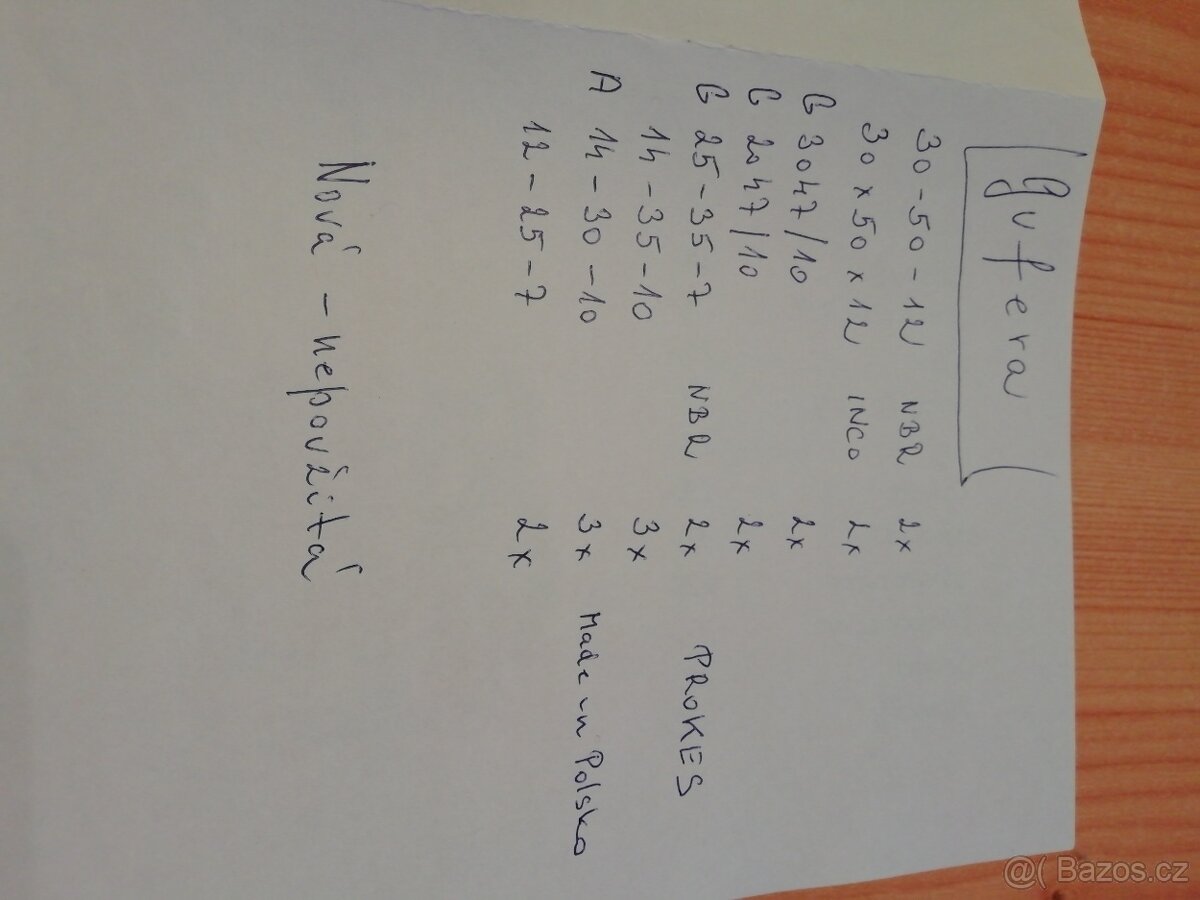 Gufera
30-50-12 NBR 2x
30x50x12 INCO 2x
G 3047/10 2x
G 2047/10 2x
G 25-35-7 NBR 2x PROKES
14-35-10 3x
A 14-30-10 3x Made in Polsko
12-25-7 2x
Nová - nepoužitá
@( Bazos.cz